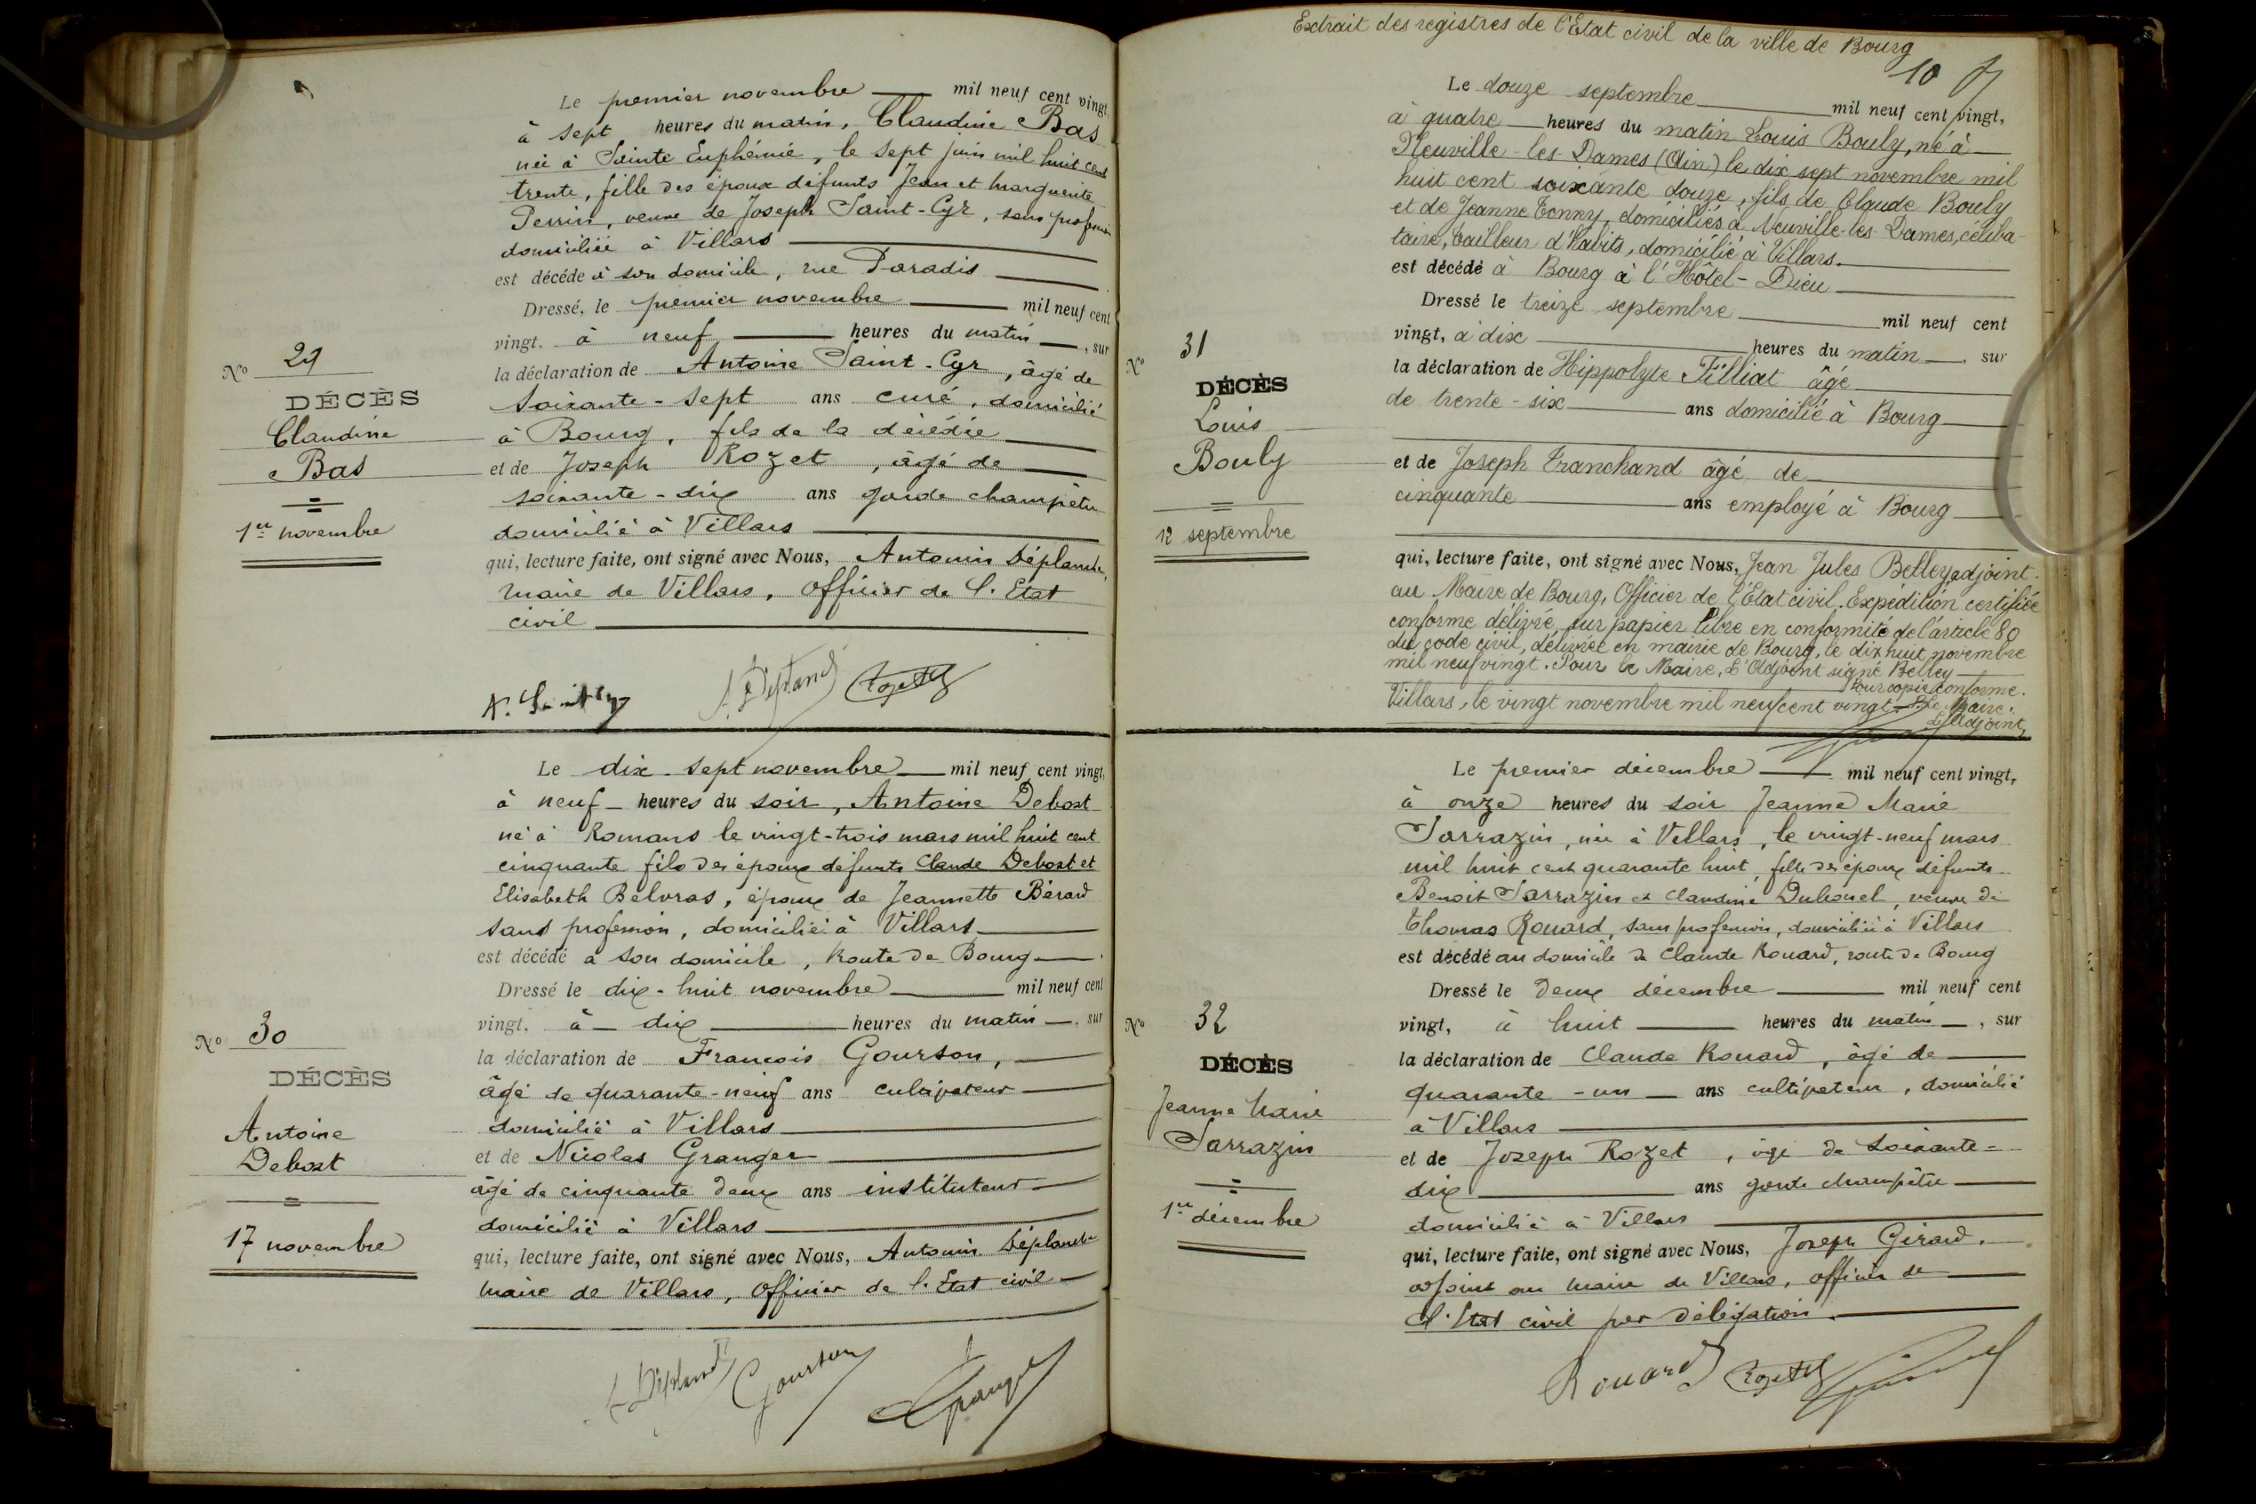 Le premier novembre mil neuf cent vingt,
à sept heures du matin, Claudine Bas
née à Sainte Euphémie, le sept juin mil huit cent
trente, fille des époux défunts Jean et Marguerite
Perrin, veuve de Joseph Saint-Cyr, sans profession
domiciliée à Villars
est décédé à son domicile, rue Paradis
Dressé, le premier novembre mil neuf cent
vingt. à neuf heures du matin, sur
la déclaration de Antoine Saint-Cyr, âgé de
soixante-sept ans curé, domicilié
à Bourg, fils de la décédée
et de Joseph Rozet, âgé de
soixante-dix ans garde champêtre
domicilié à Villars
qui, lecture faite, ont signé avec Nous, Antonin Déplanche,
Maire de Villars, officier de l'Etat
civil
No 29
DÉCÈS
Claudine
Bas
1er novembre
A. Saint Cyr
Le dix-sept novembre mil neuf cent vingt,
à neuf heures du soir, Antoine Debost
né à Romans le vingt-trois mars mil huit cent
cinquante fils des époux défunts Claude Debost et
Elisabeth Belvras, époux de Jeannette Bérard
sans profession, domicilié à Villars
est décédé à son domicile, Route de Bourg
Dressé le dix-huit novembre mil neuf cent
vingt, à dix heures du matin, sur
la déclaration de François Gourson,
âgé de quarante-neuf ans cultivateur
domicilié à Villars
et de Nicolas Granger
âgé de cinquante deux ans instituteur
domicilié à Villars
qui, lecture faite, ont signé avec Nous, Antonin Déplanche
Maire de Villars, officier de l'Etat civil
No 30
DÉCÈS
Antoine
Debost
17 novembre
Gourson
Granger
Extrait des registres de l'Etat civil de la ville de Bourg
10
Le douze septembre mil neuf cent vingt,
à quatre heures du matin Louis Bouly, né à
Neuville-les-Dames (Ain) le dix sept novembre mil
huit cent soixante douze, fils de Claude Bouly
et de Jeanne Tonny, domiciliés à Neuville-les-Dames, céliba-
taire, tailleur d'habits, domicilié à Villars.
est décédé à Bourg à l'Hôtel-Dieu
Dressé le treize septembre mil neuf cent
vingt, à dix heures du matin, sur
la déclaration de Hippolyte Filliat âgé
de trente-six ans domicilié à Bourg
et de Joseph Tranchand âgé de
cinquante ans employé à Bourg
qui, lecture faite, ont signé avec Nous, Jean Jules Belley adjoint
au Maire de Bourg, Officier de l'Etat civil. Expédition certifiée
conforme délivré sur papier libre en conformité de l'article 80
du code civil, délivrée en mairie de Bourg, le dix huit novembre
mil neuf vingt. Pour le Maire, L'Adjoint signé Belley
Pour copie conforme.
Villars, le vingt novembre mil neuf cent vingt. P. le Maire.
L'Adjoint,
No 31
DÉCÈS
Louis
Bouly
12 septembre
Le premier décembre mil neuf cent vingt,
à onze heures du soir Jeanne Marie
Sarrazin, née à Villars, le vingt-neuf mars
mil huit cent quarante huit, fille des époux défunts
Benoit Sarrazin et Claudine Dubouel, veuve de
Thomas Rouard, sans profession, domiciliée à Villars
est décédé au domicile de Claude Rouard, route de Bourg
Dressé le deux décembre mil neuf cent
vingt, à huit heures du matin, sur
la déclaration de Claude Rouard, âgé de
quarante-un ans cultivateur, domicilié
à Villars
et de Joseph Rozet, âgé de soixante-
dix ans garde champêtre
domicilié à Villars
qui, lecture faite, ont signé avec Nous, Joseph Girard.
adjoint au Maire de Villars, officier de
l'Etat civil par délégation.
No 32
DÉCÈS
Jeanne Marie
Sarrazin
1er décembre
Rouard